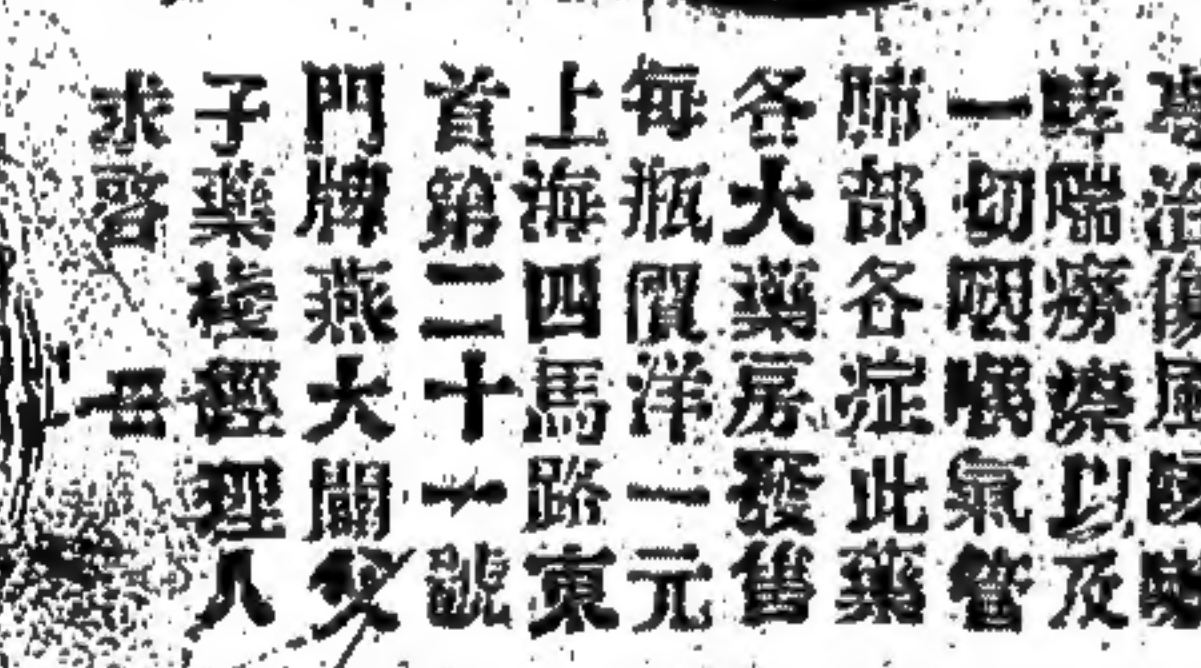 專治傷風咳嗽
哮喘癆瘵以及
一切咽喉氣管
肺部各症此藥
各大藥房發售
每瓶價洋一元
上海四馬路東
首第二十一號
門牌燕大闢父
子藥棧經理人
求啓